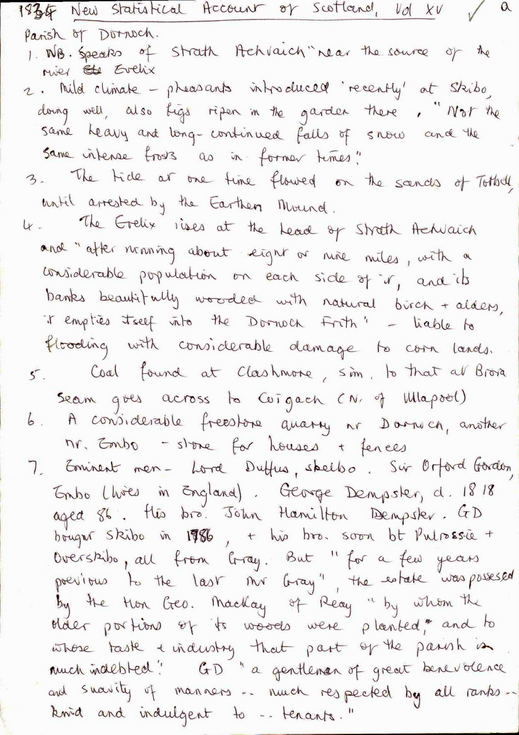 1834 New Statistical Account of Scotland, Vol XV ✓ a
Parish of Dornoch.
1. NB. Speaks of Strath Achvaich "near the source of the
river Evelix
2. Mild climate - pheasants introduced 'recently' at Skibo,
doing well, also figs ripen in the garden there, "Not the
same heavy and long-continued falls of snow and the
same intense frosts as in former times".
3. The tide at one time flowed on the sands of Torboll,
until arrested by the Earthen Mound.
4. The Evelix rises at the head of Strath Achvaich
and "after running about eight or nine miles, with a
considerable population on each side of it, and its
banks beautifully wooded with natural birch + alders,
it empties itself into the Dornoch Frith" - liable to
flooding with considerable damage to corn lands.
5. Coal found at Clashmore, sim. to that at Brora
Seam goes across to Coigach (N. of Ullapool)
6. A considerable freestone quarry nr Dornoch, another
nr. Embo - stone for houses + fences
7. Eminent men - Lord Duffus, Skelbo. Sir Orford Gordon,
Embo (lives in England). George Dempster, d. 1818
aged 86. His bro. John Hamilton Dempster. GD
bought Skibo in 1786, + his bro. soon bt Pulrossie +
Overskibo, all from Gray. But "for a few years
previous to the last Mr Gray", the estate was possesed
by the Hon Geo. Mackay of Reay "by whom the
older portions of its woods were planted," and to
whose taste & industry that part of the parish is
much indebted". GD "a gentleman of great benevolence
and suavity of manners -- much respected by all ranks --
kind and indulgent to -- tenants."